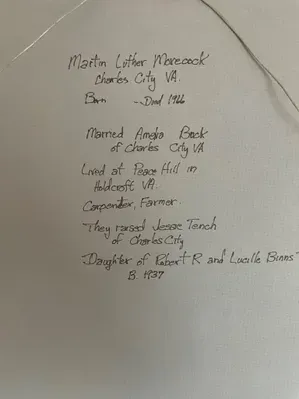 Martin Luther Morecock
Charles City VA.
Born - Died 1966
Married Amelia Buck
of Charles City VA
Lived at Peace Hill in
Holdcroft VA.
Carpenter, Farmer.
They raised Jessie Tench
of Charles City
Daughter of Robert R and Lucille Binns
B. 1937